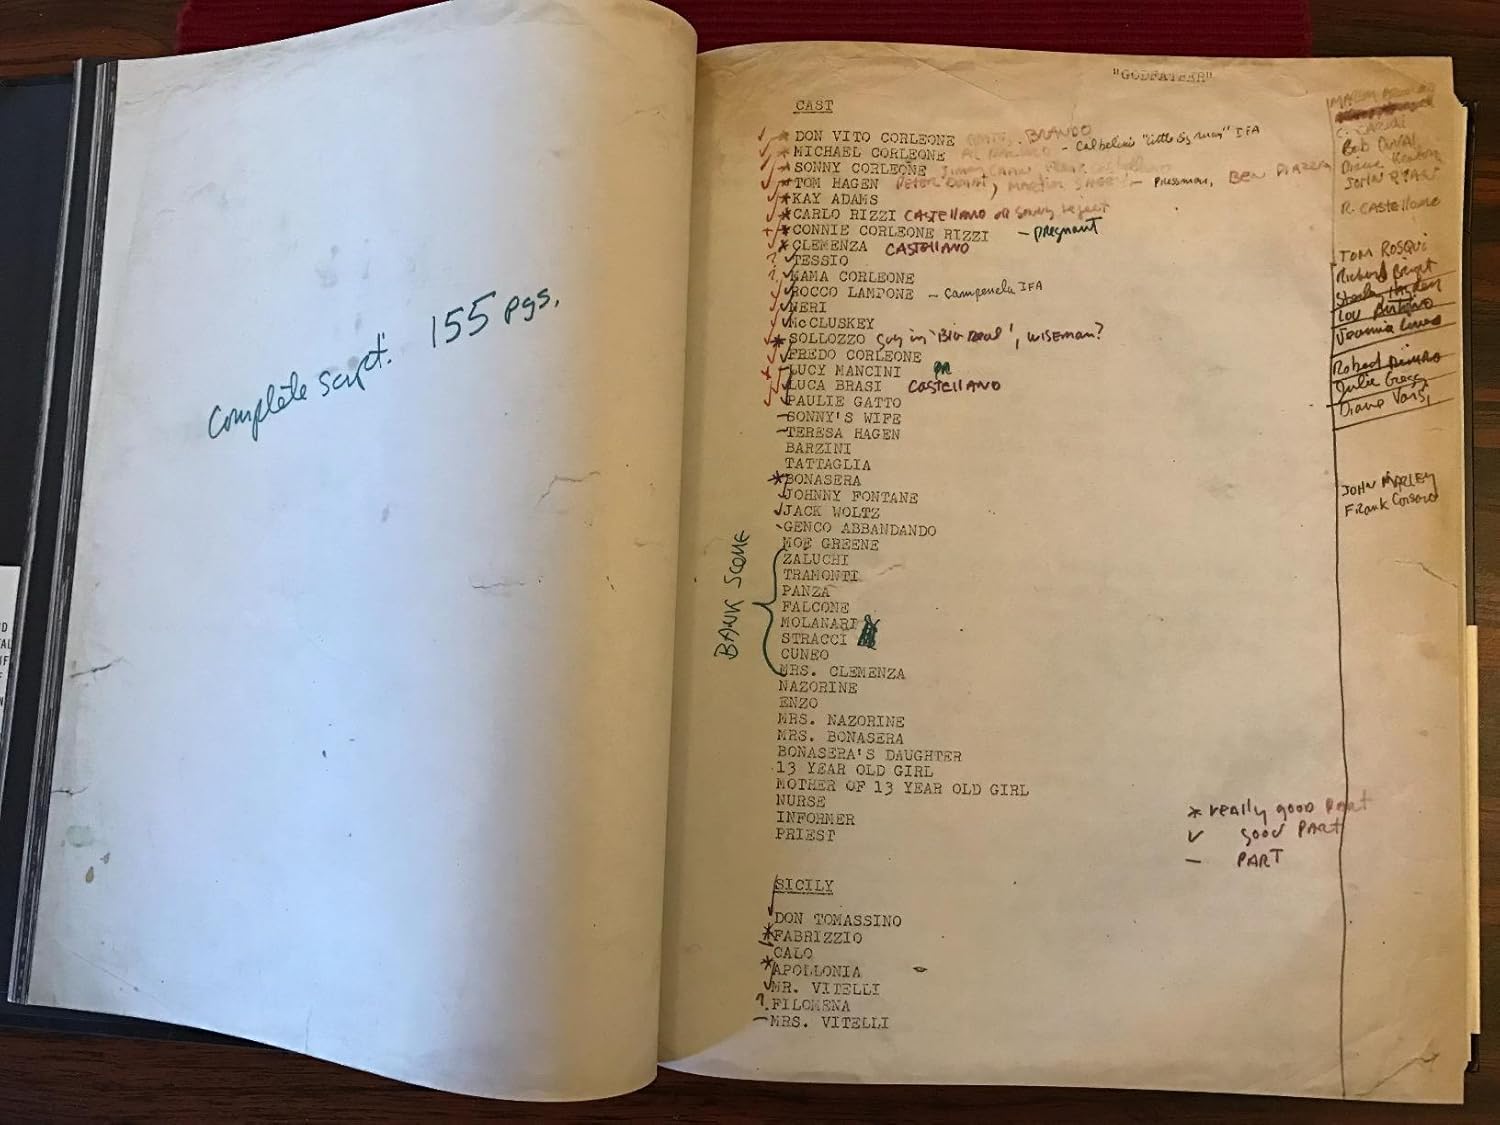 Complete script. 155 pgs.
"GODFATHER"
CAST
DON VITO CORLEONE BRANDO
MICHAEL CORLEONE AL PACINO - "little big man" IFA
SONNY CORLEONE JIMMY CAAN
TOM HAGEN PETER, MARTIN SHEEN - Pressman, BEN PIAZZA
*KAY ADAMS
*CARLO RIZZI CASTELLANO or Sonny reject
*CONNIE CORLEONE RIZZI - pregnant
CLEMENZA CASTELLANO
? TESSIO
? MAMA CORLEONE
ROCCO LAMPONE - Campenela IFA
NERI
McCLUSKEY
*SOLLOZZO guy in 'Big Deal', WISEMAN?
FREDO CORLEONE
LUCY MANCINI
LUCA BRASI CASTELLANO
PAULIE GATTO
-SONNY'S WIFE
-TERESA HAGEN
BARZINI
TATTAGLIA
*BONASERA
JOHNNY FONTANE
JACK WOLTZ
GENCO ABBANDANDO
MOE GREENE
BANK SCENE
ZALUCHI
TRAMONTI
PANZA
FALCONE
MOLANARI
STRACCI
CUNEO
MRS. CLEMENZA
NAZORINE
ENZO
MRS. NAZORINE
MRS. BONASERA
BONASERA'S DAUGHTER
13 YEAR OLD GIRL
MOTHER OF 13 YEAR OLD GIRL
NURSE
INFORMER
PRIEST
SICILY
DON TOMASSINO
*FABRIZZIO
CALO
*APOLLONIA
MR. VITELLI
? FILOMENA
-MRS. VITELLI
C. CARIDI
Bob Duval
Diane Keaton
JOHN RYAN
R. CASTELLANO
TOM ROSQUI
Richard Bright
Sterling Hayden
Lou Antonio
Robert
Julie Gregg
Diane Varsi
JOHN MARLEY
Frank Corsaro
* really good part
✓ good PART
— PART